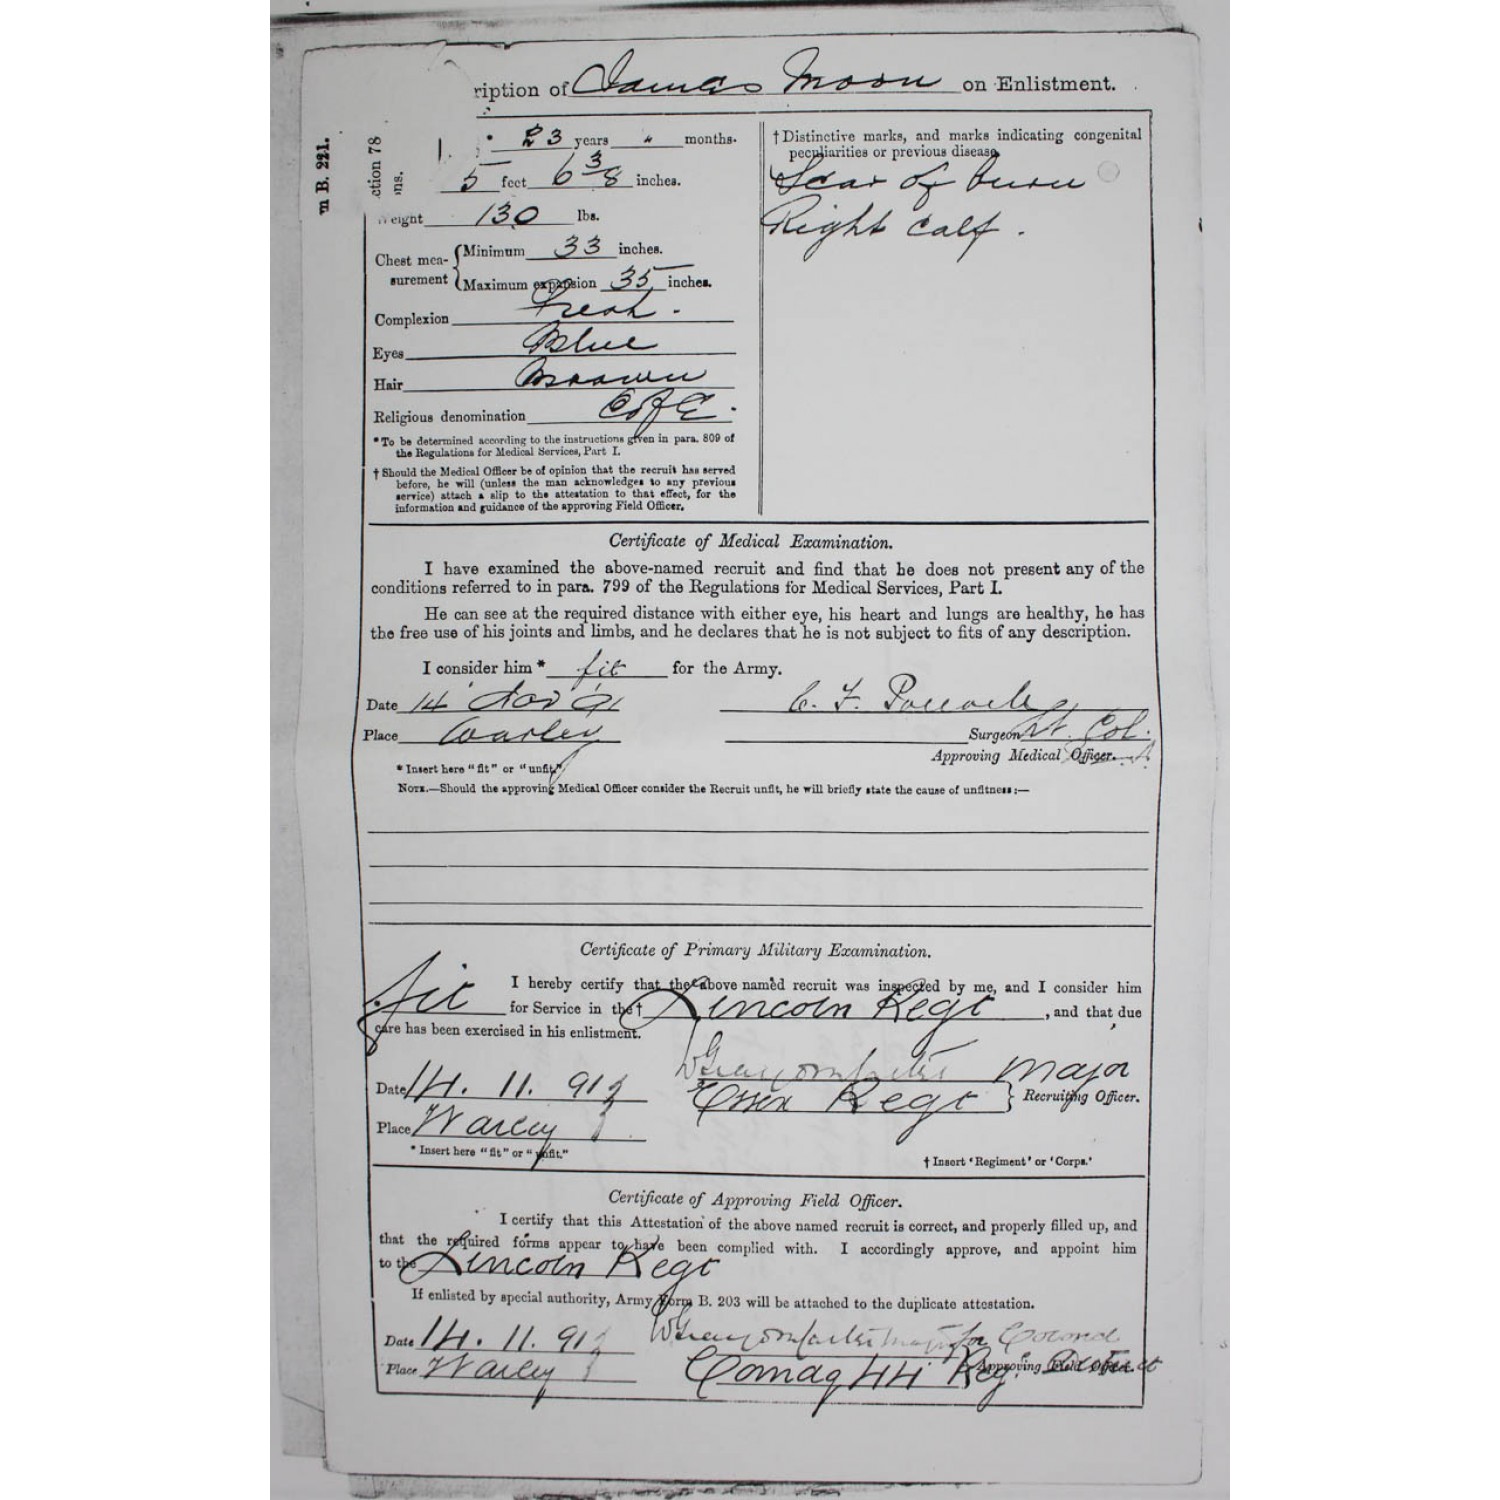 ription of James Moon on Enlistment.
m B. 221.
ction 78
ns.
23 years " months.
5 feet 6 3/8 inches.
eight 130 lbs.
Chest mea- surement { Minimum 33 inches.
Maximum expansion 35 inches.
Complexion Fresh.
Eyes Blue
Hair Brown
Religious denomination C of E.
* To be determined according to the instructions given in para. 809 of
the Regulations for Medical Services, Part I.
† Should the Medical Officer be of opinion that the recruit has served
before, he will (unless the man acknowledges to any previous
service) attach a slip to the attestation to that effect, for the
information and guidance of the approving Field Officer.
† Distinctive marks, and marks indicating congenital
peculiarities or previous disease.
Scar of burn
Right Calf.
Certificate of Medical Examination.
I have examined the above-named recruit and find that he does not present any of the
conditions referred to in para. 799 of the Regulations for Medical Services, Part I.
He can see at the required distance with either eye, his heart and lungs are healthy, he has
the free use of his joints and limbs, and he declares that he is not subject to fits of any description.
I consider him * fit for the Army.
Date 14 Nov C. F.
Place Warley Surgeon Lt. Col.
Approving Medical Officer.
* Insert here "fit" or "unfit."
NOTE.—Should the approving Medical Officer consider the Recruit unfit, he will briefly state the cause of unfitness:—
Certificate of Primary Military Examination.
I hereby certify that the above named recruit was inspected by me, and I consider him
fit for Service in the † Lincoln Regt, and that due
care has been exercised in his enlistment.
Major
Date 14. 11. 91 Essex Regt } Recruiting Officer.
Place Warley
* Insert here "fit" or "unfit."
† Insert 'Regiment' or 'Corps.'
Certificate of Approving Field Officer.
I certify that this Attestation of the above named recruit is correct, and properly filled up, and
that the required forms appear to have been complied with. I accordingly approve, and appoint him
to the Lincoln Regt
If enlisted by special authority, Army Form B. 203 will be attached to the duplicate attestation.
Date 14. 11. 91 Major for Colonel
Place Warley Comdg 44 Reg. District
Approving Field Officer.